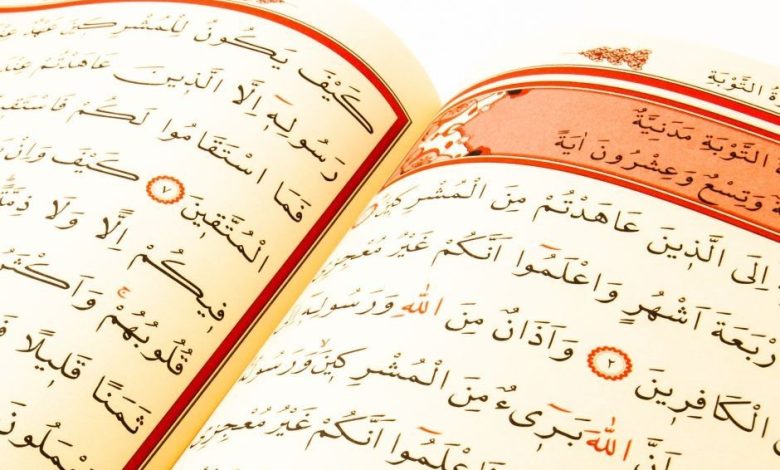 التَّوْبَة
التَّوْبَةِ مَدَنِيَّةٌ
وَتِسْعٌ وَعِشْرُونَ اٰيَةً
اِلَى الَّذٖينَ عَاهَدْتُمْ مِنَ الْمُشْرِكٖينَ
رْبَعَةَ اَشْهُرٍ وَاعْلَمُٓوا اَنَّكُمْ غَيْرُ مُعْجِزِي
الْكَافِرٖينَ ٢ وَاَذَانٌ مِنَ اللّٰهِ وَرَسُولِهٖٓ
اَنَّ اللّٰهَ بَرٖٓيءٌ مِنَ الْمُشْرِكٖينَ وَرَسُولُهُ
اعْلَمُٓوا اَنَّكُمْ غَيْرُ مُعْجِزِي
كَيْفَ يَكُونُ لِلْمُشْرِكٖينَ عَهْدٌ عِنْدَ
رَسُولِهٖٓ اِلَّا الَّذٖينَ عَاهَدْتُمْ عِنْدَ
فَمَا اسْتَقَامُوا لَكُمْ فَاسْتَقٖ
الْمُتَّقٖينَ ٧ كَيْفَ وَاِنْ
فٖيكُمْ اِلًّا وَلَا ذِمَّةً
قُلُوبُهُمْ وَاَكْثَرُ
ثَمَنًا قَلٖيلًا فَ